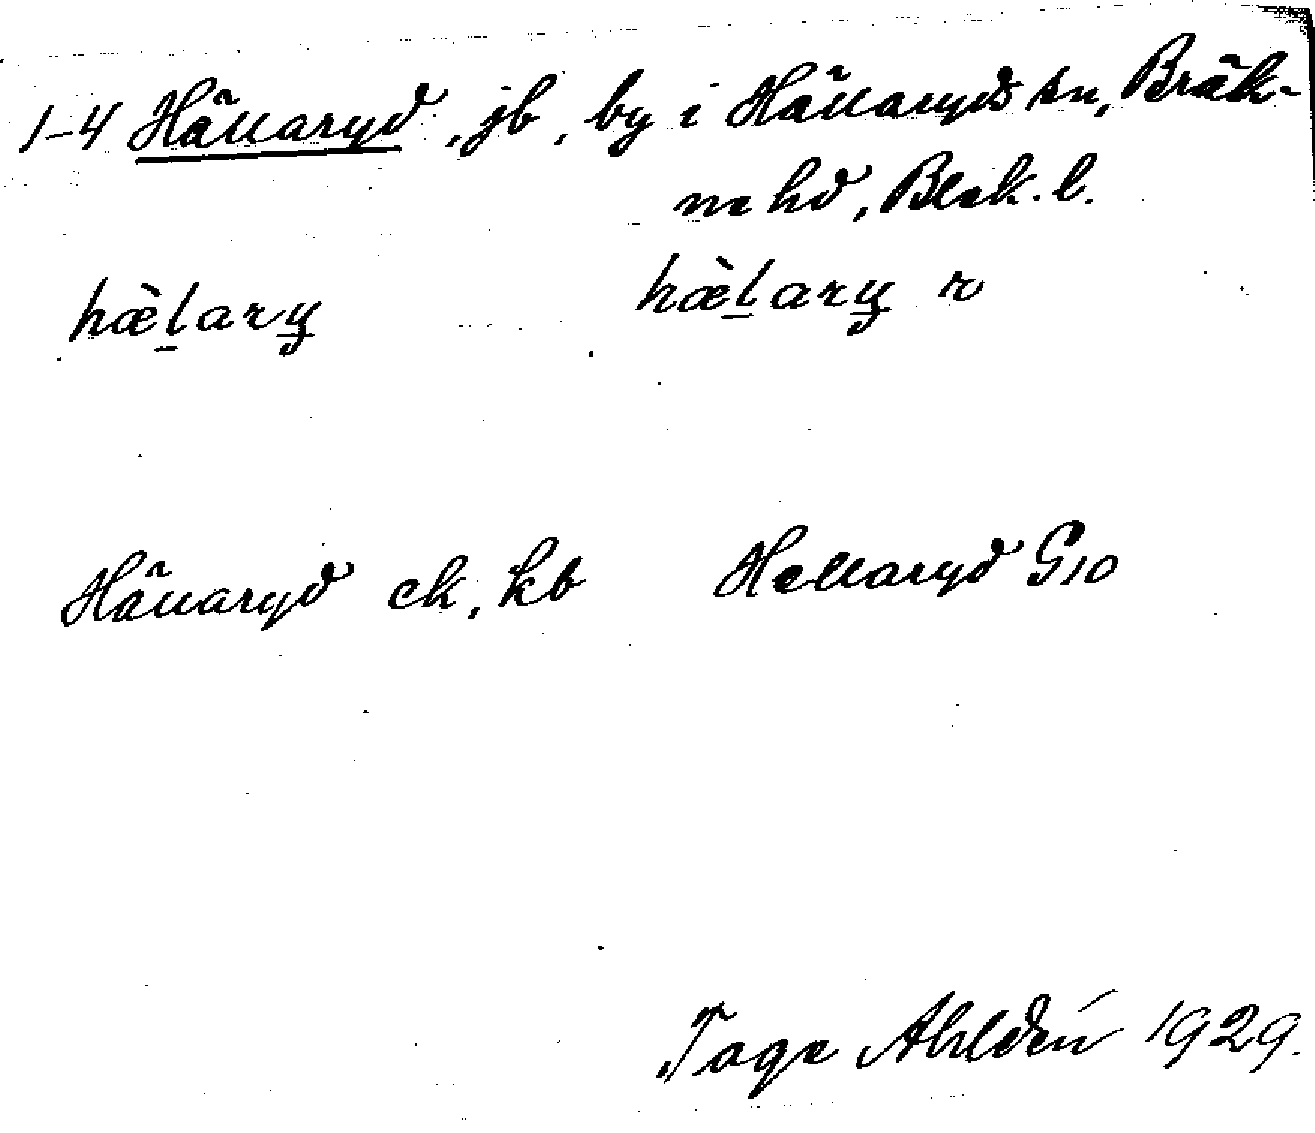 1-4 Hällaryd, jb, by i Hällaryds sn, Bräk-
ne hd, Blek. l.
hæ̀l̠ary̠ hæ̀l̠ary̠ r
Hällaryd ek, kb Hellaryd G10
Tage Ahldén 1929.